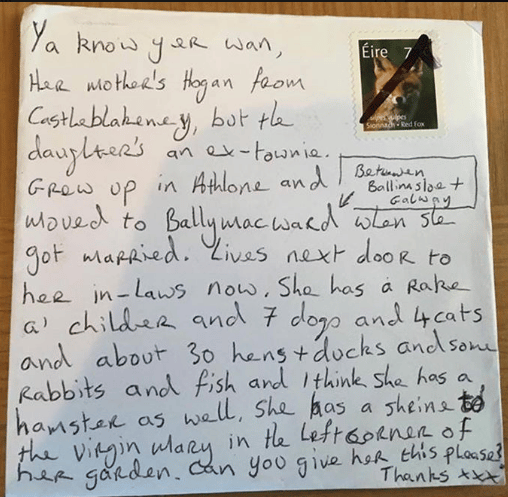 Ya know yer wan,
Éire 7
Her mother's Hogan from
Castleblakeney, but the
vulpes vulpes
Sionnach • Red Fox
daughter's an ex-townie.
Grew up in Athlone and
Between
Ballinasloe +
Galway
moved to Ballymacward when she
got married. Lives next door to
her in-laws now. She has a rake
a' childer and 7 dogs and 4 cats
and about 30 hens + ducks and some
rabbits and fish and I think she has a
hamster as well. She has a shrine to
the Virgin Mary in the left corner of
her garden. Can you give her this please?
Thanks xxx